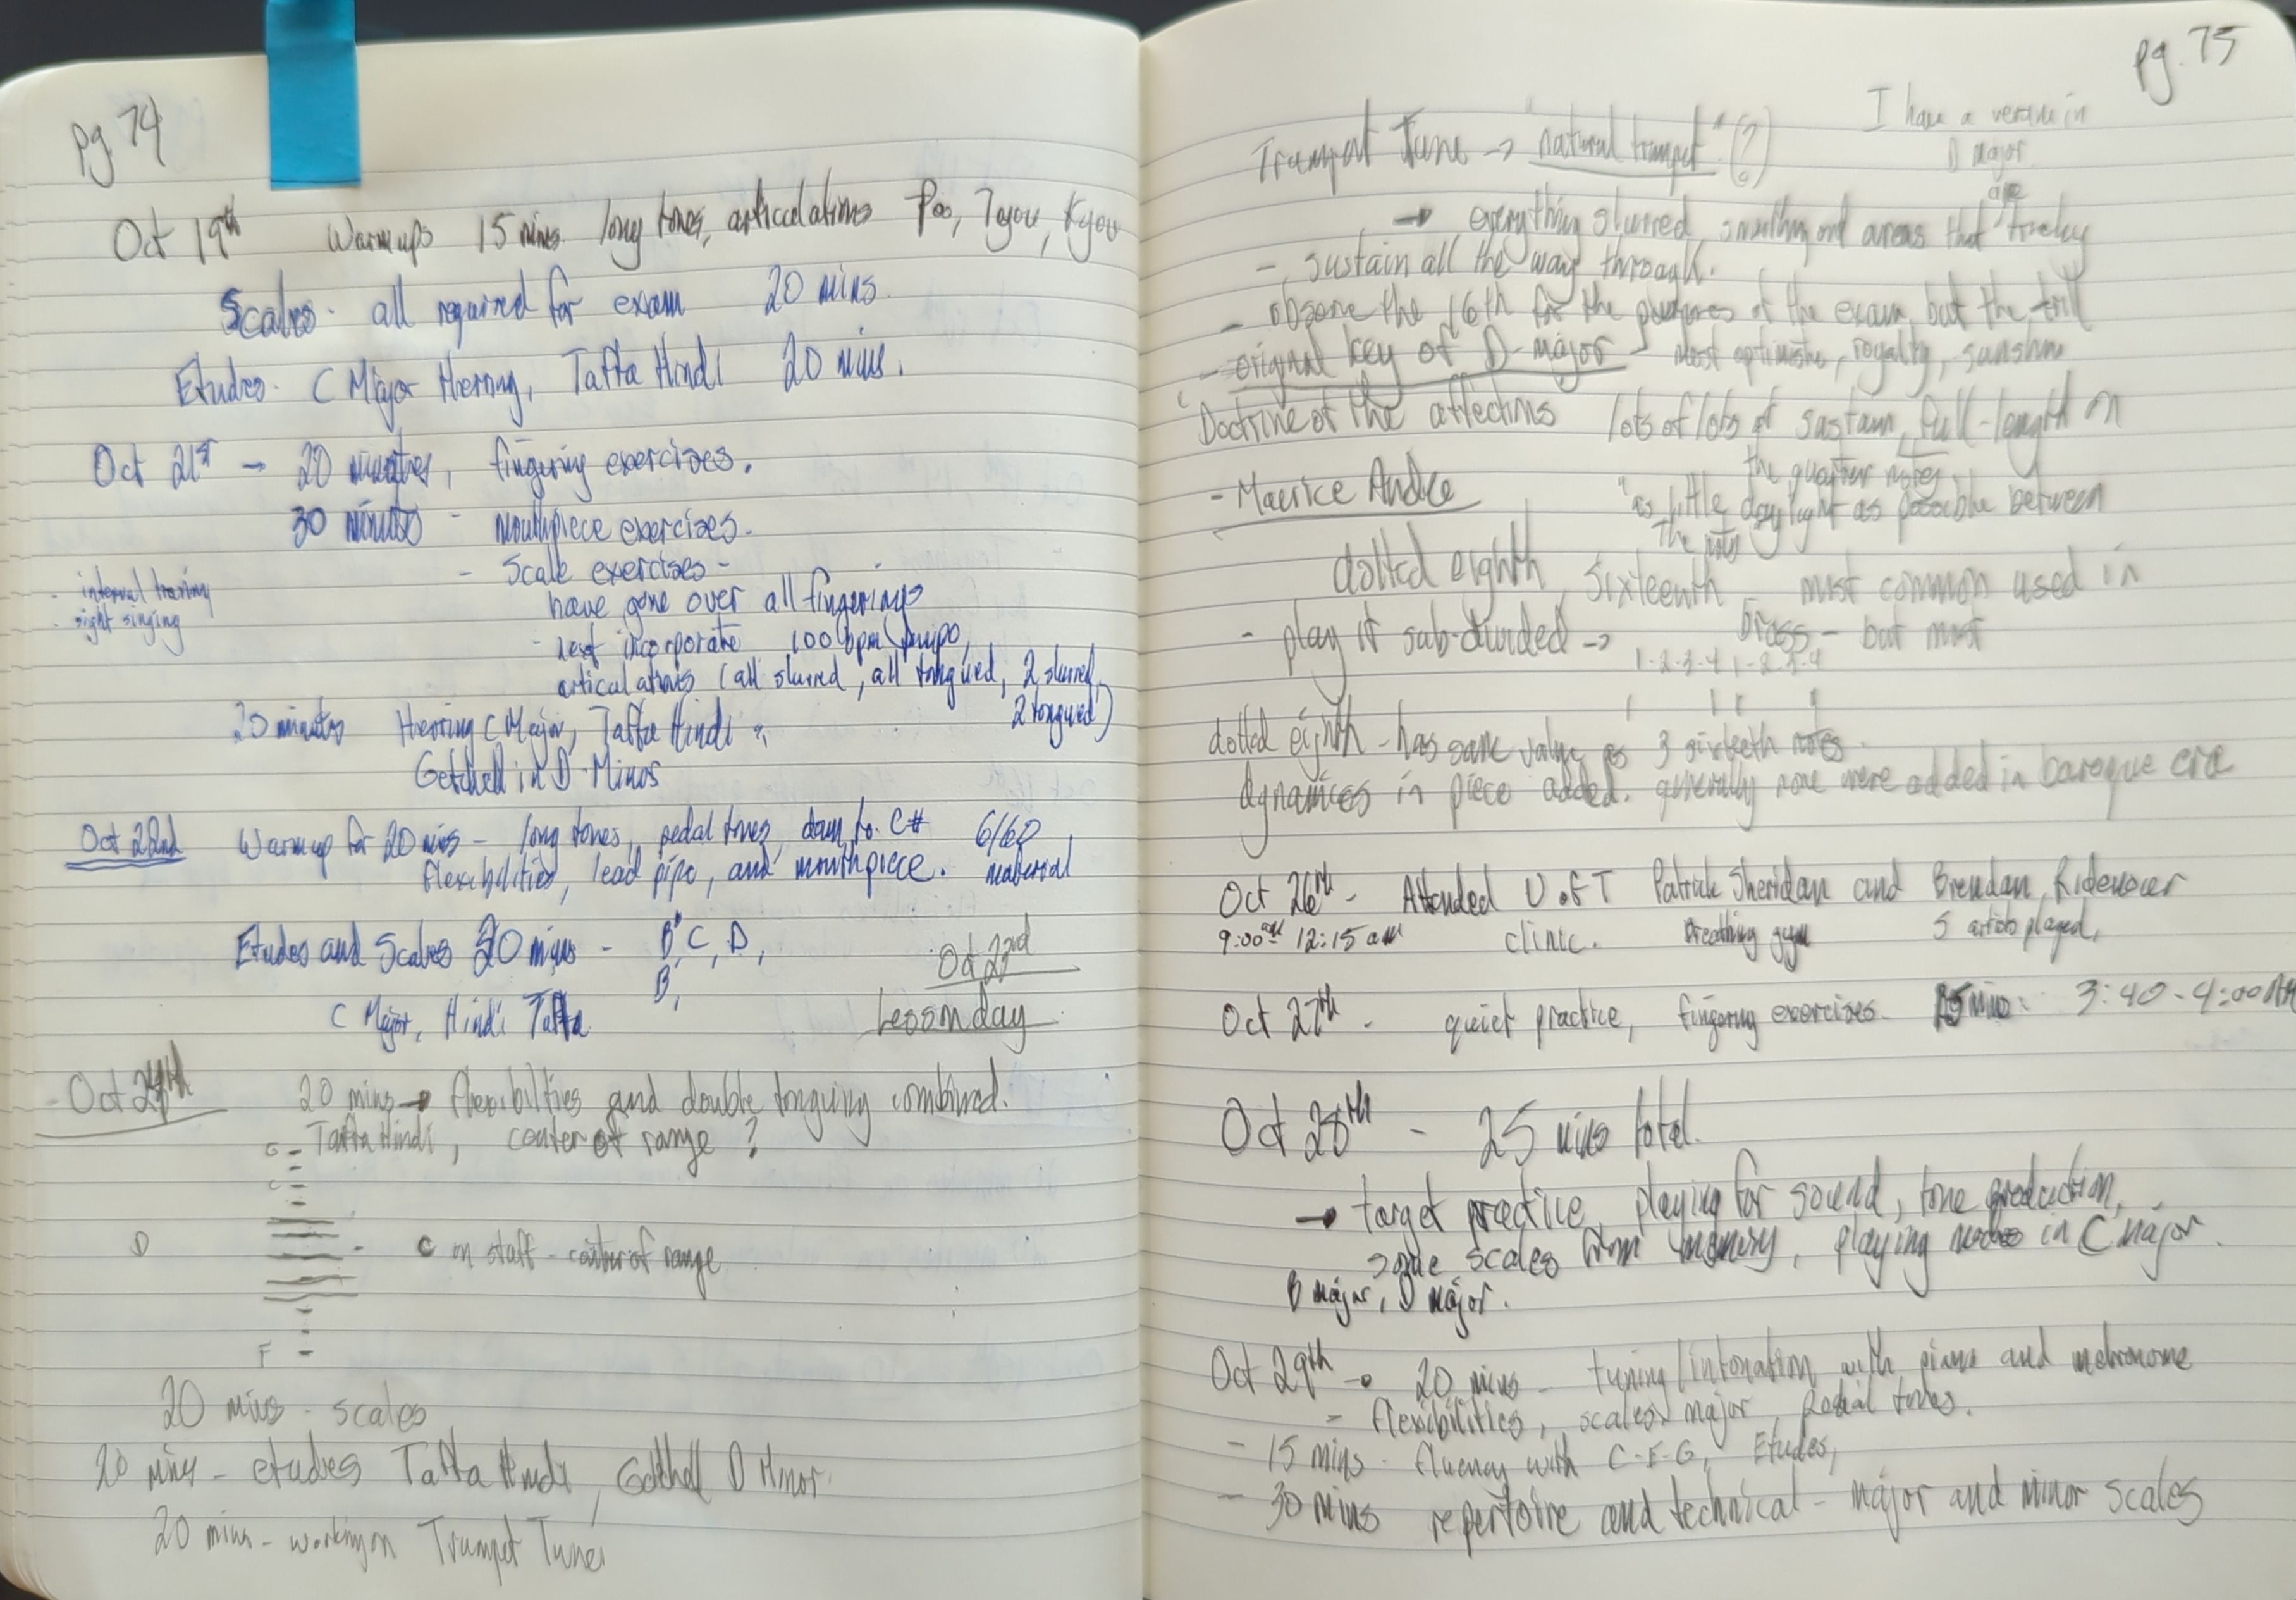 pg. 74
Oct 19th Warmups 15 mins long tones, articulations Poo, Tyou, Kyou
Scales - all required for exam 20 mins.
Etudes - C Major Hering, Taffta Hindi 20 mins.
Oct 21st → 20 minutes, fingering exercises.
30 minutes - mouthpiece exercises.
- Scale exercises -
- interval training
have gone over all fingerings
- sight singing
- next incorporate 100 bpm tempo,
articulations (all slurred, all tongued, 2 slurred,
2 tongued)
20 minutes Herring C Major, Taffta Hindi
Getchell in D Minor
Oct 22nd Warmup for 20 mins - long tones, pedal tones, down to C# 6/60
flexibilities, lead pipe, and mouthpiece. material
Etudes and Scales 20 mins - Bb, C, D,
B,
Oct 23rd
C Major, Hindi Taffta
Lesson day
- Oct 24th 20 mins → flexibilities and double tonguing combined.
Taffta Hindi, center of range ?
G
C
D C on staff - center of range
F
20 mins - scales
20 mins - etudes Taffta Hindi, Getchell D Minor.
20 mins - working on Trumpet Tune
pg. 75
I have a version in
D major
Trumpet Tune → "natural trumpet" (?)
→ everything slurred, smoothing out areas that are tricky
- sustain all the way through.
- observe the 16th for the purposes of the exam, but the trill
- original key of D-major - most optimistic, royalty, sunshine
"Doctrine of the affections lots of lots of sustain, full-length on
the quarter notes
- Maurice Andre "as little daylight as possible between
the notes
dotted eighth, sixteenth most common used in
- play it sub-divided → brass - but must
1-2-3-4 1-2-3-4
dotted eighth - has same value as 3 sixteeth notes.
dynamics in piece added. generally none were added in baroque era
Oct 26th - Attended U of T Patrick Sheridan and Brendan Ridenour
9:00am 12:15 am clinic. Breathing gym 5 artists played,
Oct 27th - quiet practice, fingering exercises. 15 mins: 3:40-4:00 AM
Oct 28th - 25 mins total.
→ target practice, playing for sound, tone production,
some scales from memory, playing in C major.
B major, D major.
Oct 29th → 20 mins - tuning/intonation with piano and metronome
- flexibilities, scales major, pedal tones.
- 15 mins - fluency with C-F-G, Etudes,
- 30 mins repertoire and technical - major and minor scales